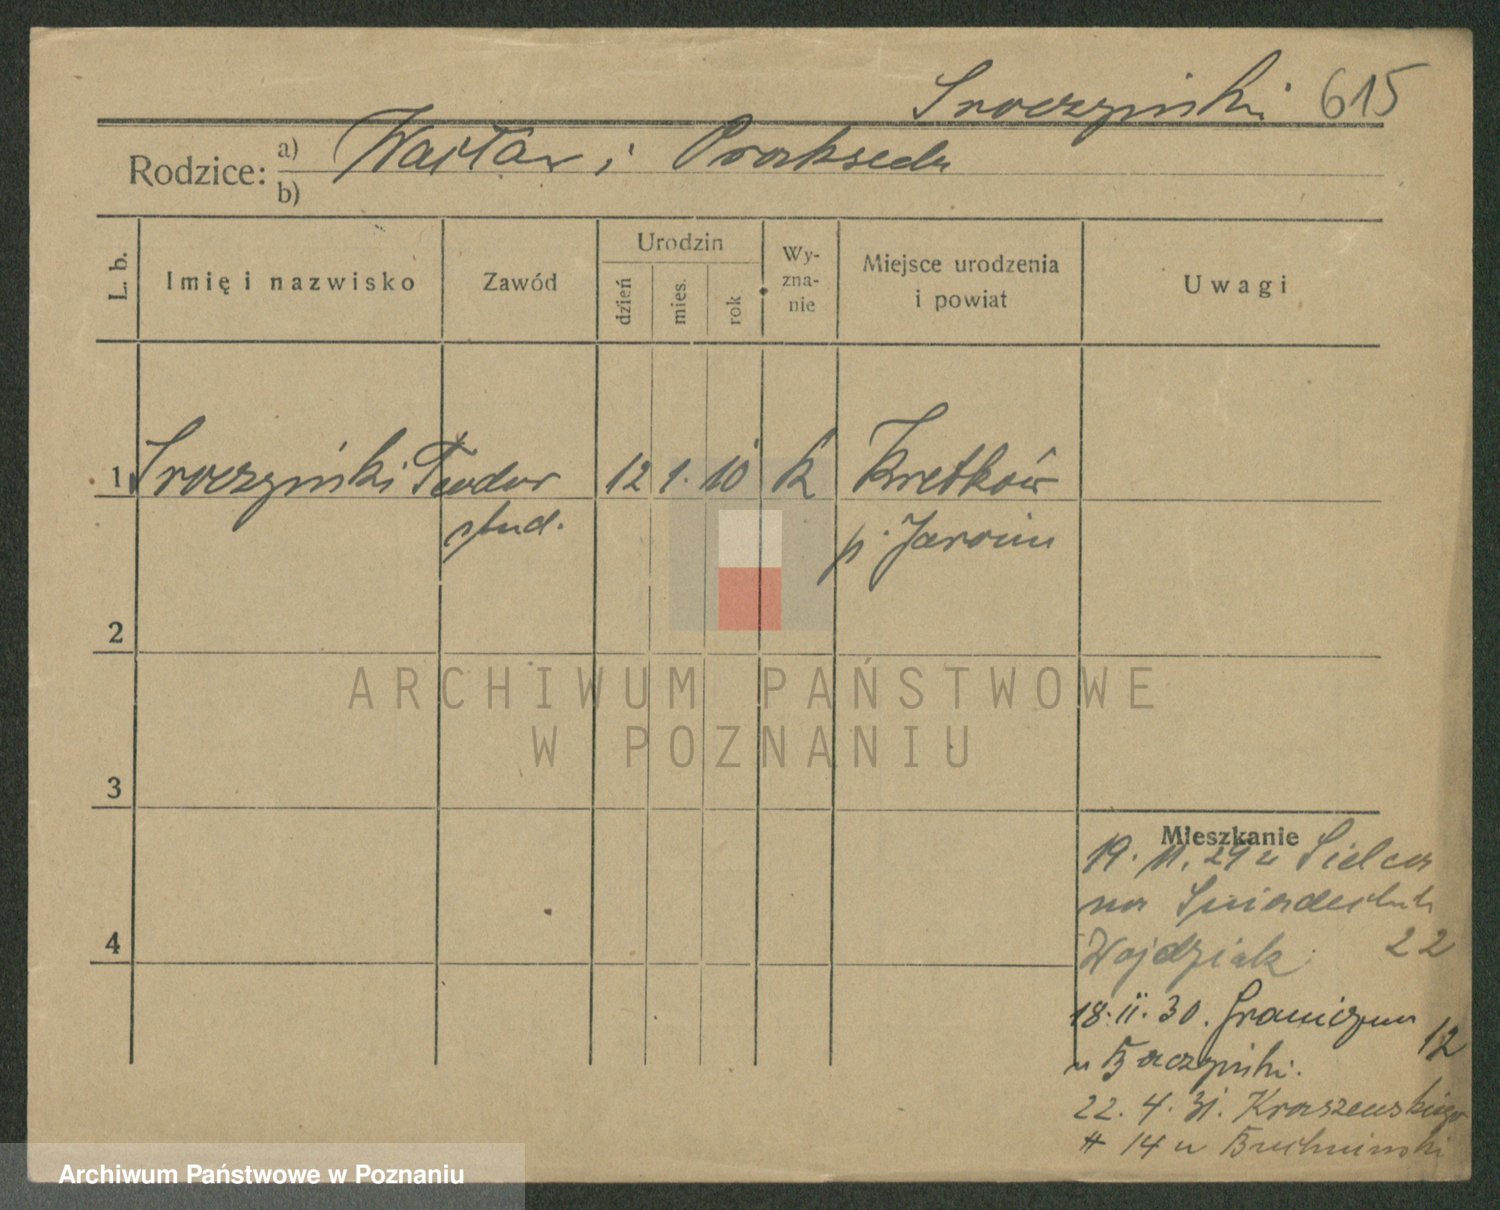 Sroczyński 615
Rodzice: a) Wacław i Prakseda
b)
L. b. Imię i nazwisko Zawód Urodzin dzień mies. rok Wy-zna-nie Miejsce urodzenia i powiat Uwagi
1 Sroczyński Teodor 12 1. 10 k Kretków
stud. p. Jarocin
2
ARCHIWUM PAŃSTWOWE
W POZNANIU
3
Mieszkanie
19. 11. 29 z Sielca
na Śniadeckich
4 Wojdziak 22
18. II. 30. Graniczna 12
u Baczyński.
22. 4. 31. Kraszewskiego
14 u
Archiwum Państwowe w Poznaniu